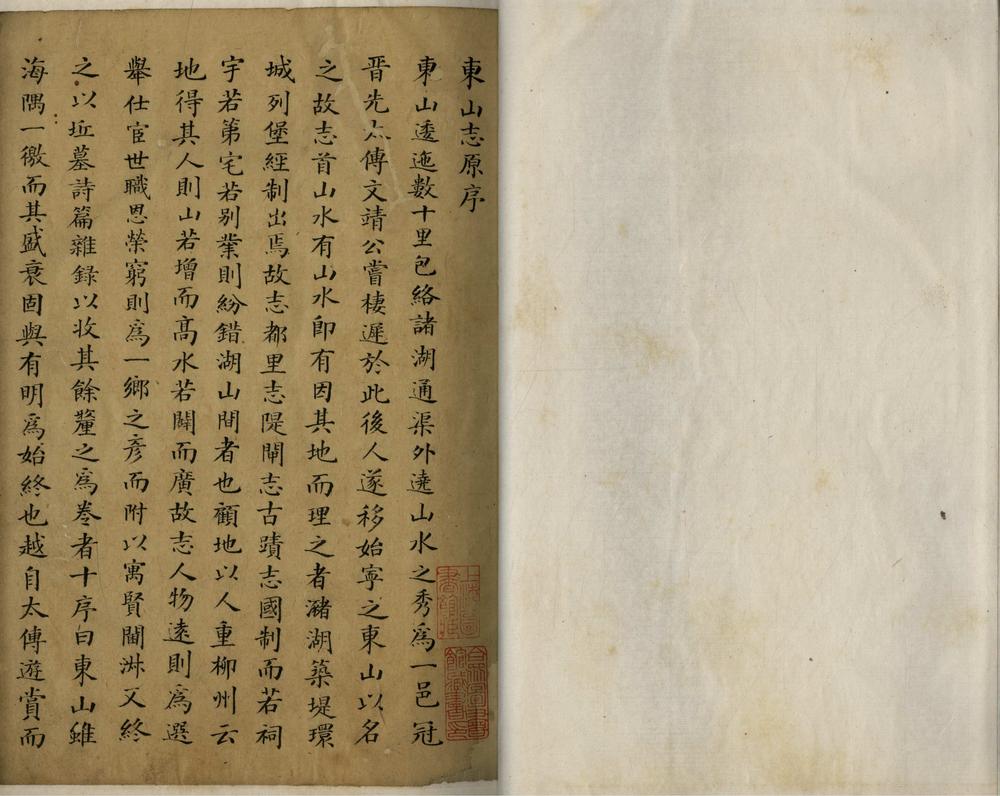 東山志原序
東山逶迤數十里包絡諸湖通渠外遶山水之秀爲一邑冠
晋先太傅文靖公嘗棲遲於此後人遂移始寧之東山以名
之故志首山水有山水即有因其地而理之者潴湖築堤環
城列堡經制出焉故志都里志隄閘志古蹟志國制而若祠
宇若第宅若别業則紛錯湖山間者也顧地以人重柳州云
地得其人則山若增而高水若闢而廣故志人物逺則爲選
舉仕宦世職恩榮窮則爲一鄉之彦而附以寓賢閫淋又終
之以坵墓詩篇雜録以收其餘釐之爲卷者十序曰東山雖
海隅一徼而其盛衰固與有明爲始終也越自太傅遊賞而